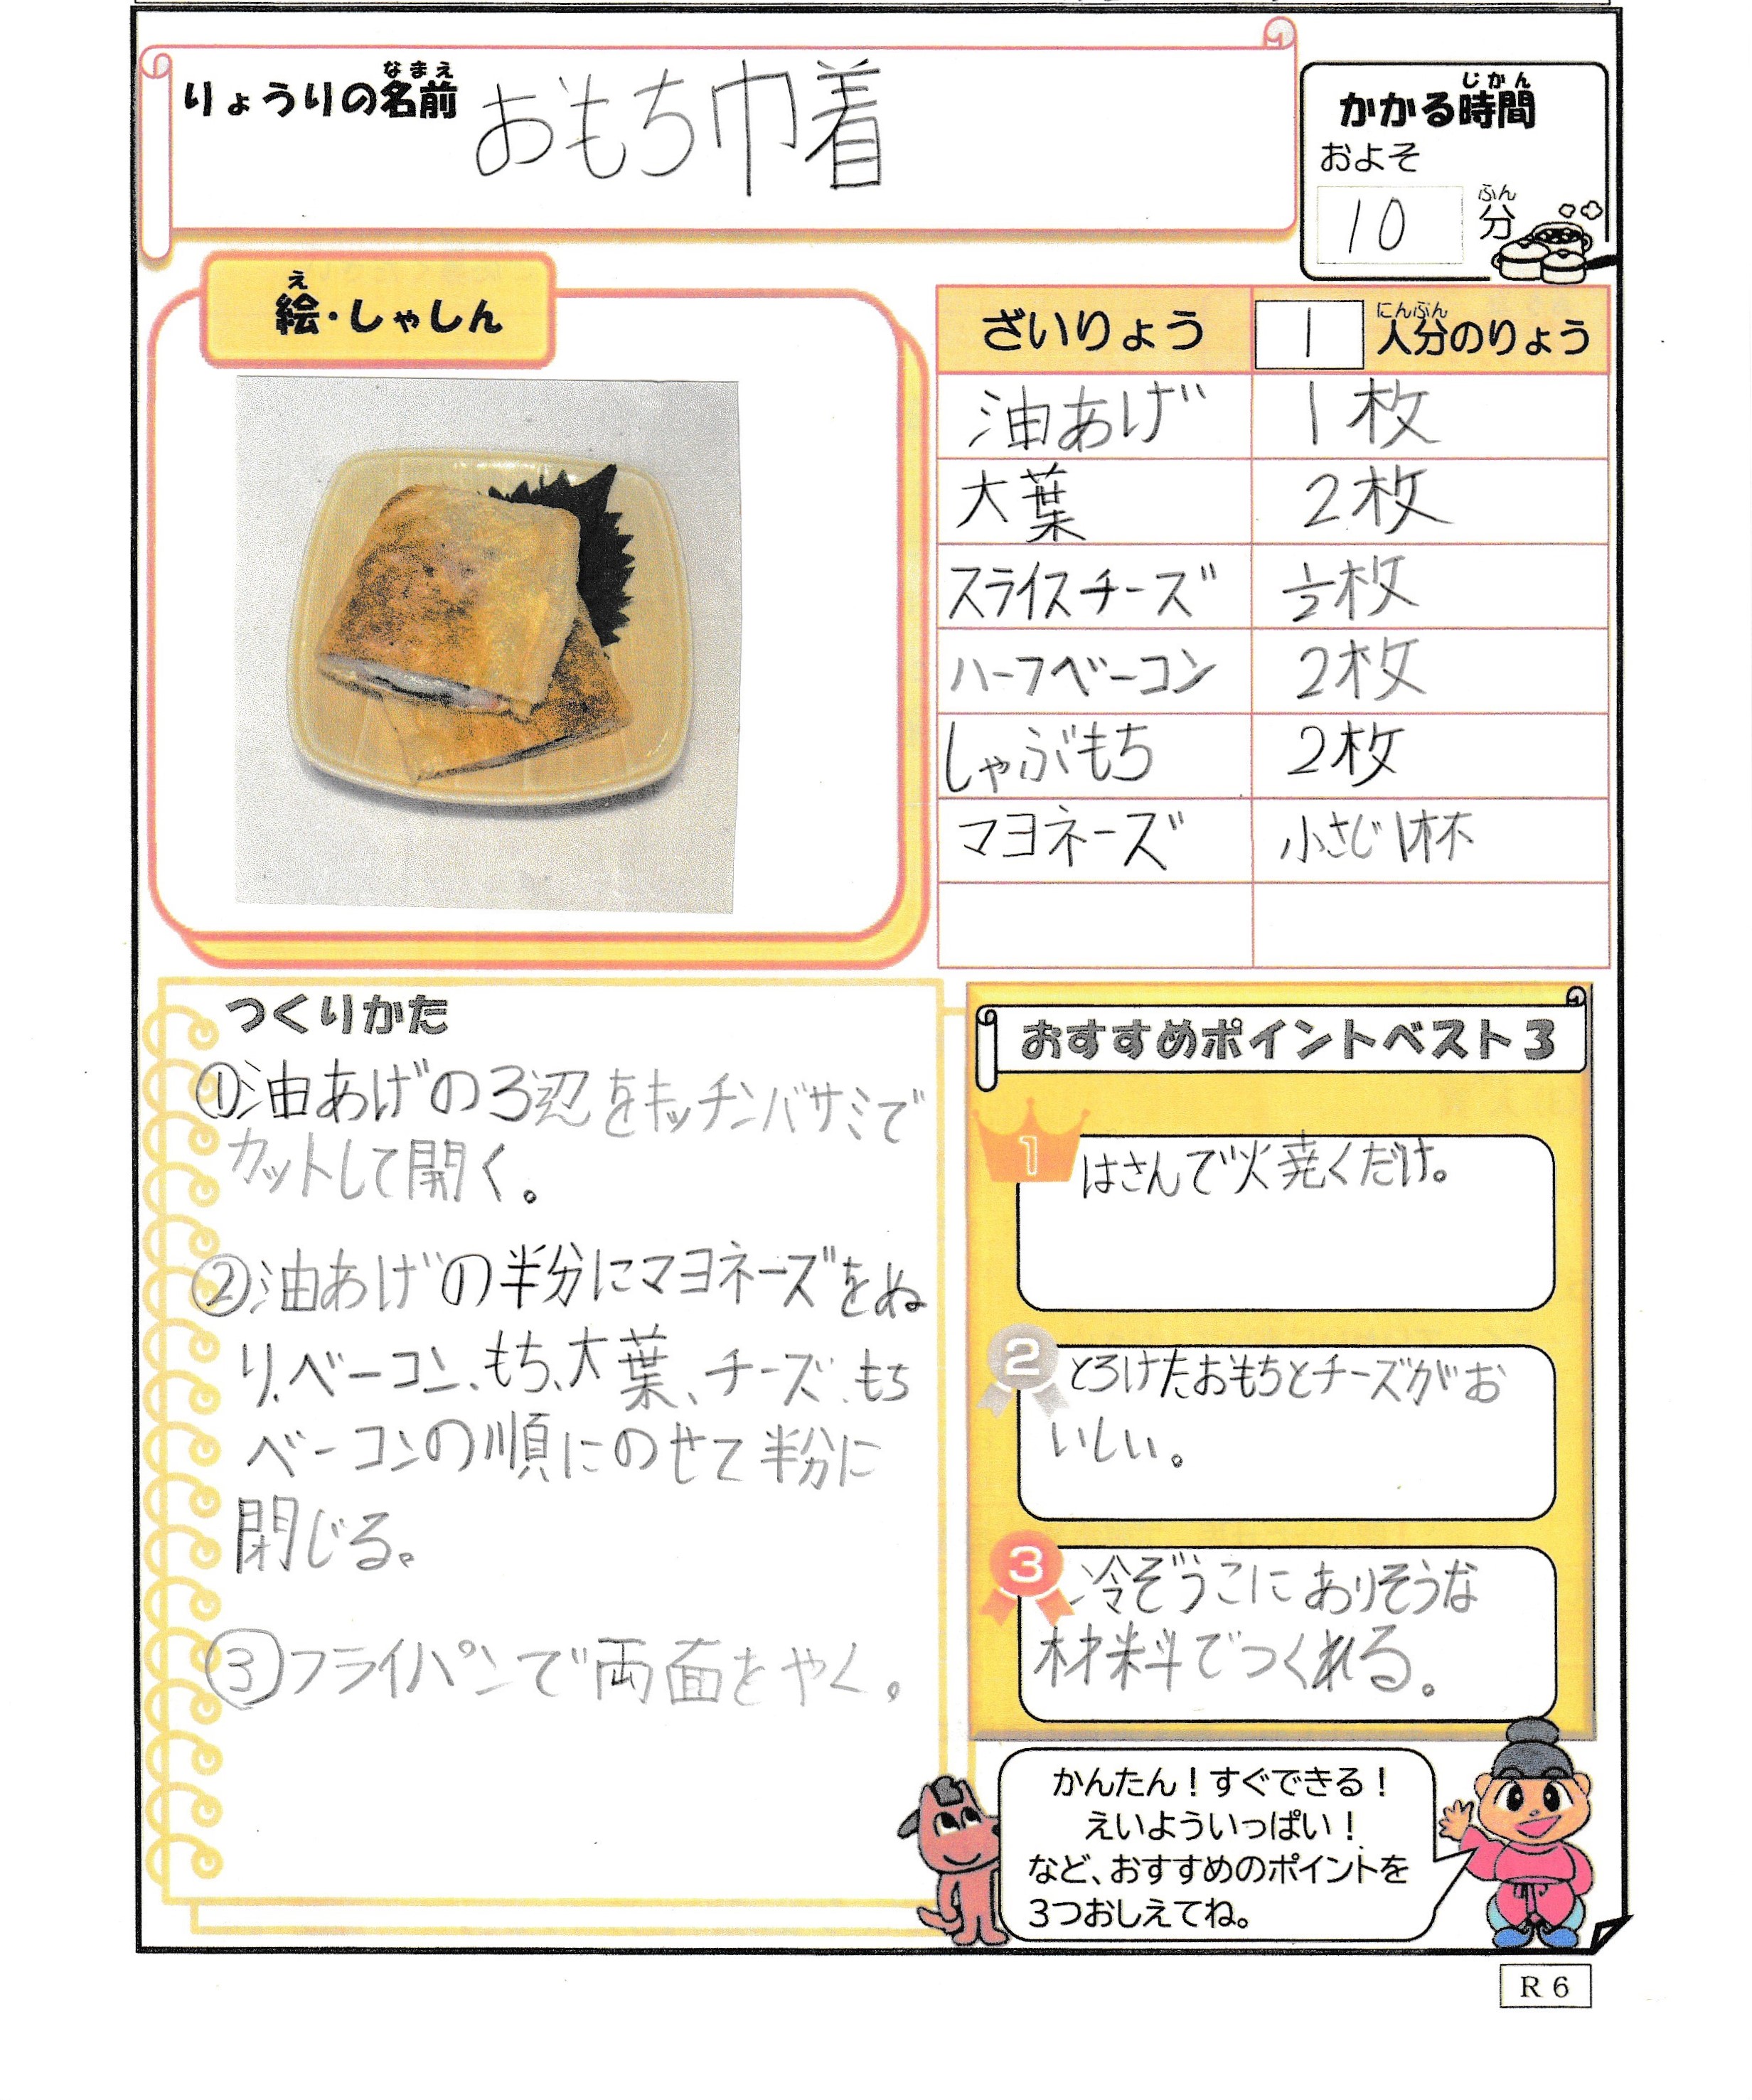 りょうりの名前
なまえ
おもち巾着
かかる時間
じかん
およそ
10
分
ふん
絵・しゃしん
え
ざいりょう
1
人分のりょう
にんぶん
油あげ 1枚
大葉 2枚
スライスチーズ ½枚
ハーフベーコン 2枚
しゃぶもち 2枚
マヨネーズ 小さじ1杯
つくりかた
①油あげの3辺をキッチンバサミで
カットして開く。
②油あげの半分にマヨネーズをぬ
り、ベーコン、もち、大葉、チーズ、もち
ベーコンの順にのせて半分に
閉じる。
③フライパンで両面をやく。
おすすめポイントベスト3
1
はさんで焼くだけ。
2
とろけたおもちとチーズがお
いしい。
3
冷ぞうこにありそうな
材料でつくれる。
かんたん!すぐできる!
えいよういっぱい!
など、おすすめのポイントを
3つおしえてね。
R6